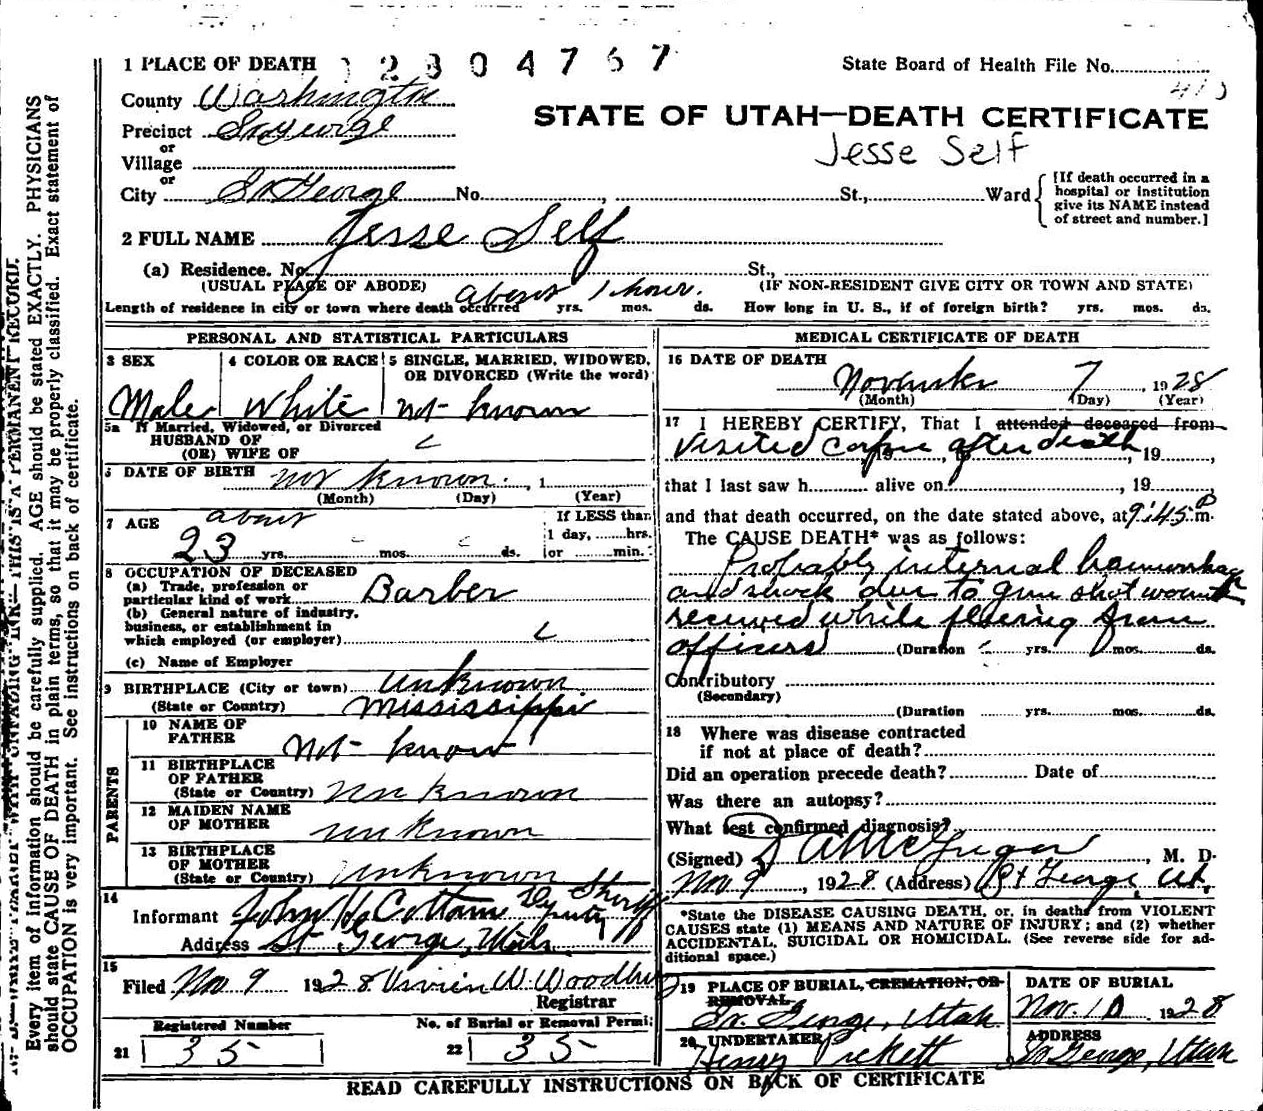 1 PLACE OF DEATH 2 3 0 4 7 6 7 State Board of Health File No.
County Washington
STATE OF UTAH—DEATH CERTIFICATE
Precinct St George
or
Village
Jesse Self
or
City St George No. , St., Ward [If death occurred in a hospital or institution give its NAME instead of street and number.]
2 FULL NAME Jesse Self
(a) Residence. No. St.,
(USUAL PLACE OF ABODE) (IF NON-RESIDENT GIVE CITY OR TOWN AND STATE)
Length of residence in city or town where death occurred about 1 hour. yrs. mos. ds. How long in U. S., if of foreign birth? yrs. mos. ds.
PERSONAL AND STATISTICAL PARTICULARS
3 SEX 4 COLOR OR RACE 5 SINGLE, MARRIED, WIDOWED, OR DIVORCED (Write the word)
Male White not known
5a If Married, Widowed, or Divorced
HUSBAND OF
(OR) WIFE OF
6 DATE OF BIRTH not known. , 1
(Month) (Day) (Year)
7 AGE about
23 yrs. mos. ds.
If LESS than
1 day, hrs.
or min.
8 OCCUPATION OF DECEASED
(a) Trade, profession or
particular kind of work Barber
(b) General nature of industry,
business, or establishment in
which employed (or employer)
(c) Name of Employer
9 BIRTHPLACE (City or town) unknown
(State or Country) Mississippi
PARENTS
10 NAME OF
FATHER Not know
11 BIRTHPLACE
OF FATHER
(State or Country) Unknown
12 MAIDEN NAME
OF MOTHER unknown
13 BIRTHPLACE
OF MOTHER
(State or Country) Unknown
14
Informant John H Cottam Deputy Sheriff
Address St George, Utah
15
Filed Nov 9 1928 Vivien W. Woodbury
Registrar
Registered Number No. of Burial or Removal Permit
21 35 22 35
MEDICAL CERTIFICATE OF DEATH
16 DATE OF DEATH
November 7, 1928
(Month) (Day) (Year)
17 I HEREBY CERTIFY, That I attended deceased from
Visited corpse after death, 19 ,
that I last saw h alive on , 19 ,
and that death occurred, on the date stated above, at 9:45 P m.
The CAUSE DEATH* was as follows:
Probably internal hemorrhage
and shock due to gun shot wound
received while fleeing from
officers (Duration yrs. mos. ds.
Contributory
(Secondary)
(Duration yrs. mos. ds.
18 Where was disease contracted
if not at place of death?
Did an operation precede death? Date of
Was there an autopsy?
What test confirmed diagnosis?
(Signed) D A McGregor, M. D.
Nov 9, 1928 (Address) St George, Ut.
*State the DISEASE CAUSING DEATH, or, in deaths from VIOLENT
CAUSES state (1) MEANS AND NATURE OF INJURY; and (2) whether
ACCIDENTAL, SUICIDAL OR HOMICIDAL. (See reverse side for ad-
ditional space.)
19 PLACE OF BURIAL, CREMATION, OR
REMOVAL
St. George, Utah
DATE OF BURIAL
Nov. 10 1928
20 UNDERTAKER
Henry Pickett
ADDRESS
St George, Utah
READ CAREFULLY INSTRUCTIONS ON BACK OF CERTIFICATE
Every item of information should be carefully supplied. AGE should be stated EXACTLY. PHYSICIANS
should state CAUSE OF DEATH in plain terms, so that it may be properly classified. Exact statement of
OCCUPATION is very important. See instructions on back of certificate.